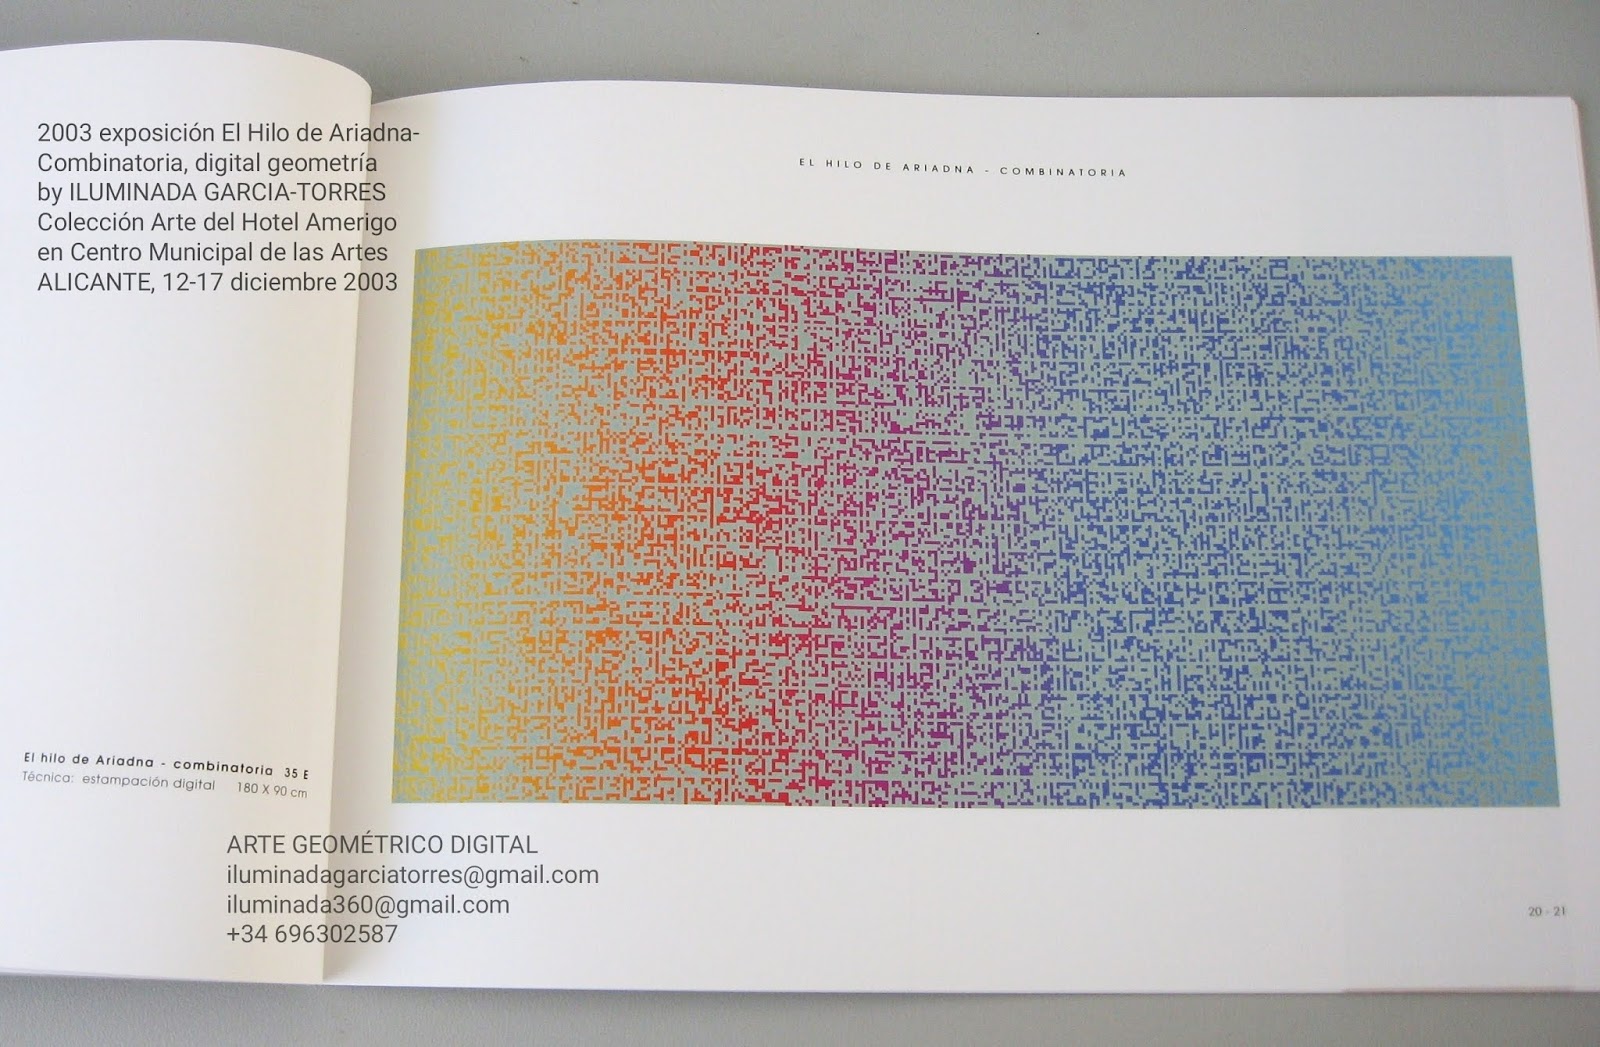 2003 exposición El Hilo de Ariadna-
Combinatoria, digital geometría
by ILUMINADA GARCIA-TORRES
Colección Arte del Hotel Amerigo
en Centro Municipal de las Artes
ALICANTE, 12-17 diciembre 2003
EL HILO DE ARIADNA - COMBINATORIA
El hilo de Ariadna - combinatoria 35 E
Técnica: estampación digital 180 X 90 cm
ARTE GEOMÉTRICO DIGITAL
iluminadagarciatorres@gmail.com
iluminada360@gmail.com
+34 696302587
20 - 21